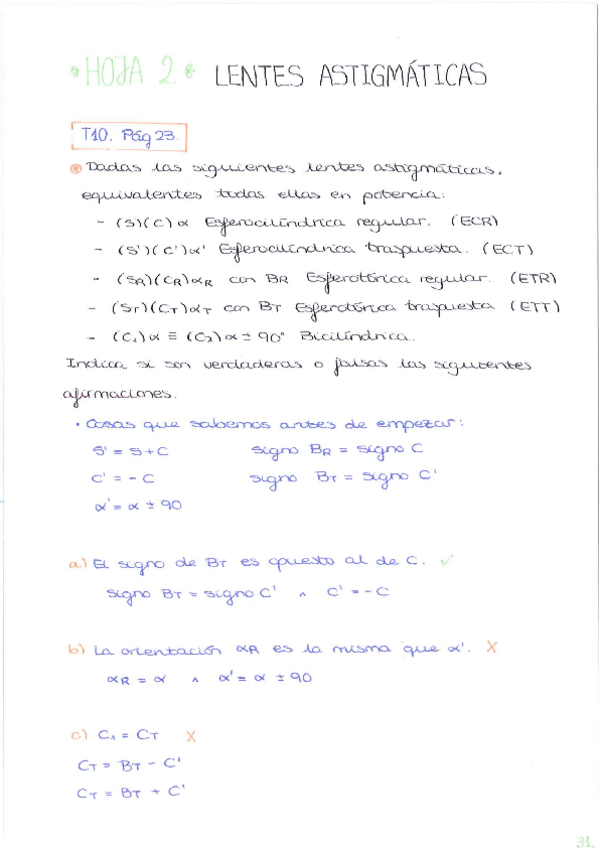 • HOJA 2 • LENTES ASTIGMÁTICAS
T10. Pág 23.
Dadas las siguientes lentes astigmáticas,
equivalentes todas ellas en potencia:
- (S)(C)α Esferocilíndrica regular. (ECR)
- (S')(C')α' Esferocilíndrica traspuesta. (ECT)
- (SR)(CR)αR con BR Esferotórica regular. (ETR)
- (ST)(CT)αT con BT Esferotórica traspuesta (ETT)
- (C₁)α ≡ (C₂)α ± 90° Bicilíndrica.
Indica si son verdaderas o falsas las siguientes
afirmaciones.
• Cosas que sabemos antes de empezar:
S' = S + C signo BR = signo C
C' = - C signo BT = signo C'
α' = α ± 90
a) El signo de BT es opuesto al de C. ✓
signo BT = signo C' ∧ C' = - C
b) La orientación αR es la misma que α'. X
αR = α ∧ α' = α ± 90
c) C₁ = CT X
CT = BT - C'
CT = BT + C'
31.